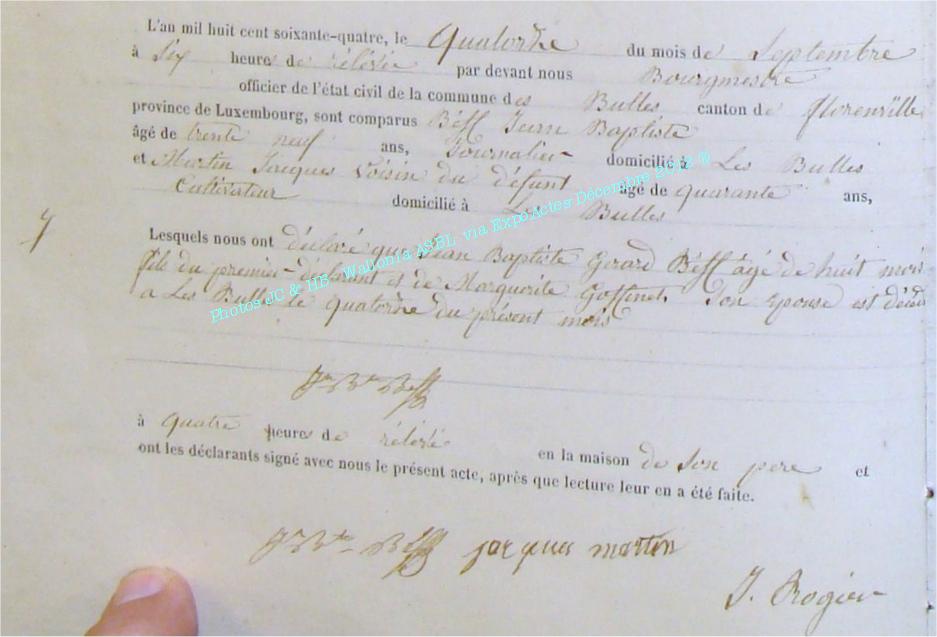 L'an mil huit cent soixante-quatre, le Quatorze du mois de Septembre
à Six heures de rélevée par devant nous Bourgmestre
officier de l'état civil de la commune des Bulles canton de florenville
province de Luxembourg, sont comparus Béff Jean Baptiste
âgé de trente neuf ans, Journalier domicilié à Les Bulles
et Martin Jacques Voisin du défunt âgé de quarante ans,
Cultivateur domicilié à Les Bulles
Lesquels nous ont déclaré que Jean Baptiste Gerard Béff âgé de huit mois
fils du premier déclarant et de Marguerite Goffinet Son epouse est décédé
a Les Bulles le quatorze du présent mois
Jn Bte Beff
à quatre heures de rélevée en la maison de Son pere et
ont les déclarants signé avec nous le présent acte, après que lecture leur en a été faite.
Jn Bte Beff jacques martin
J. Rogier
Photos JC & HB Wallonia ASBL via ExpoActes Décembre 2012 ®